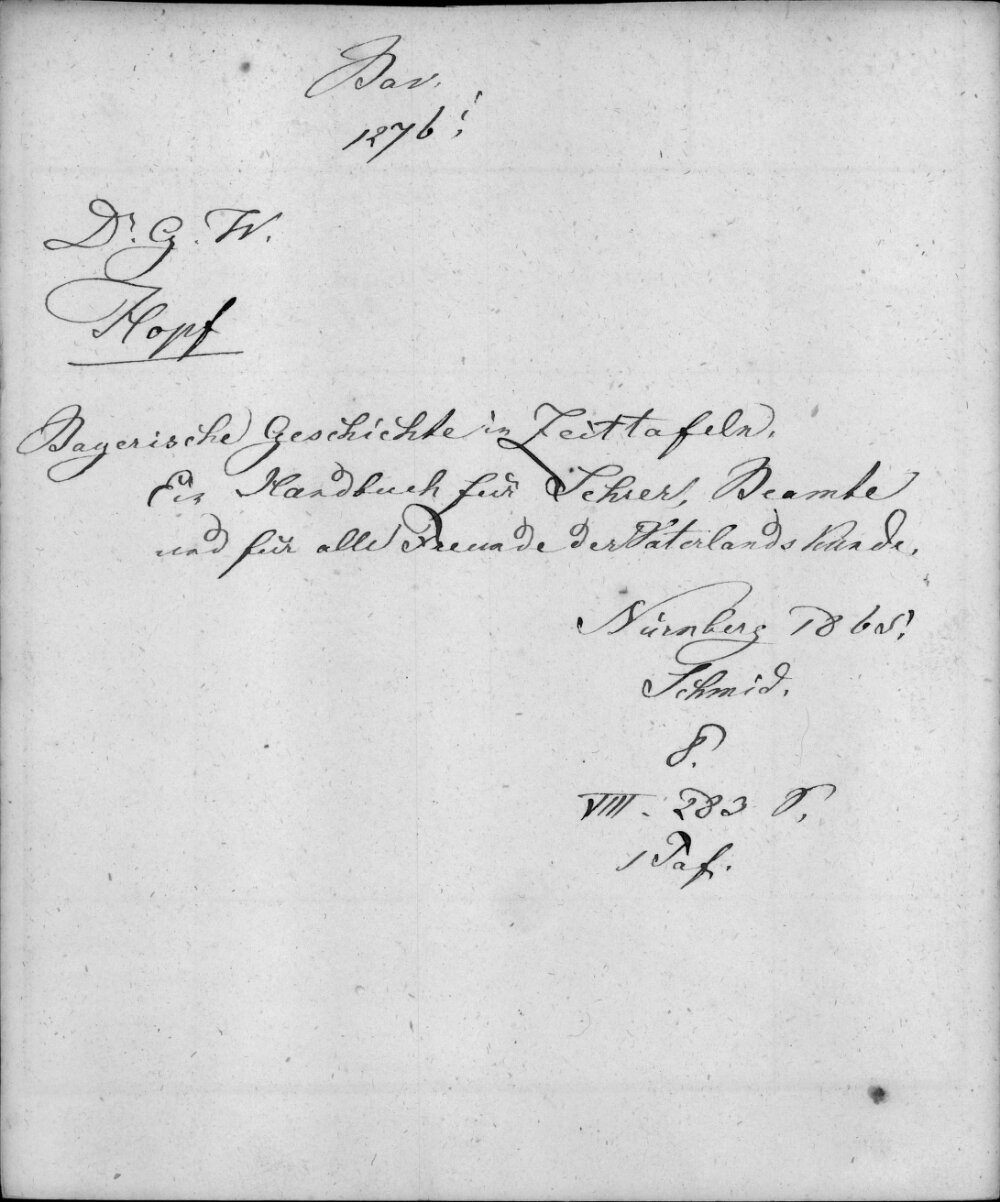 Bav.
1276!
Dr. G. W.
Hopf
Bayerische Geschichte in Zeittafeln.
Ein Handbuch für Lehrer, Beamte
und für alle Freunde der Vaterlandskunde.
Nürnberg 1865.
Schmid.
8.
VIII. 283 S.
1 Taf.